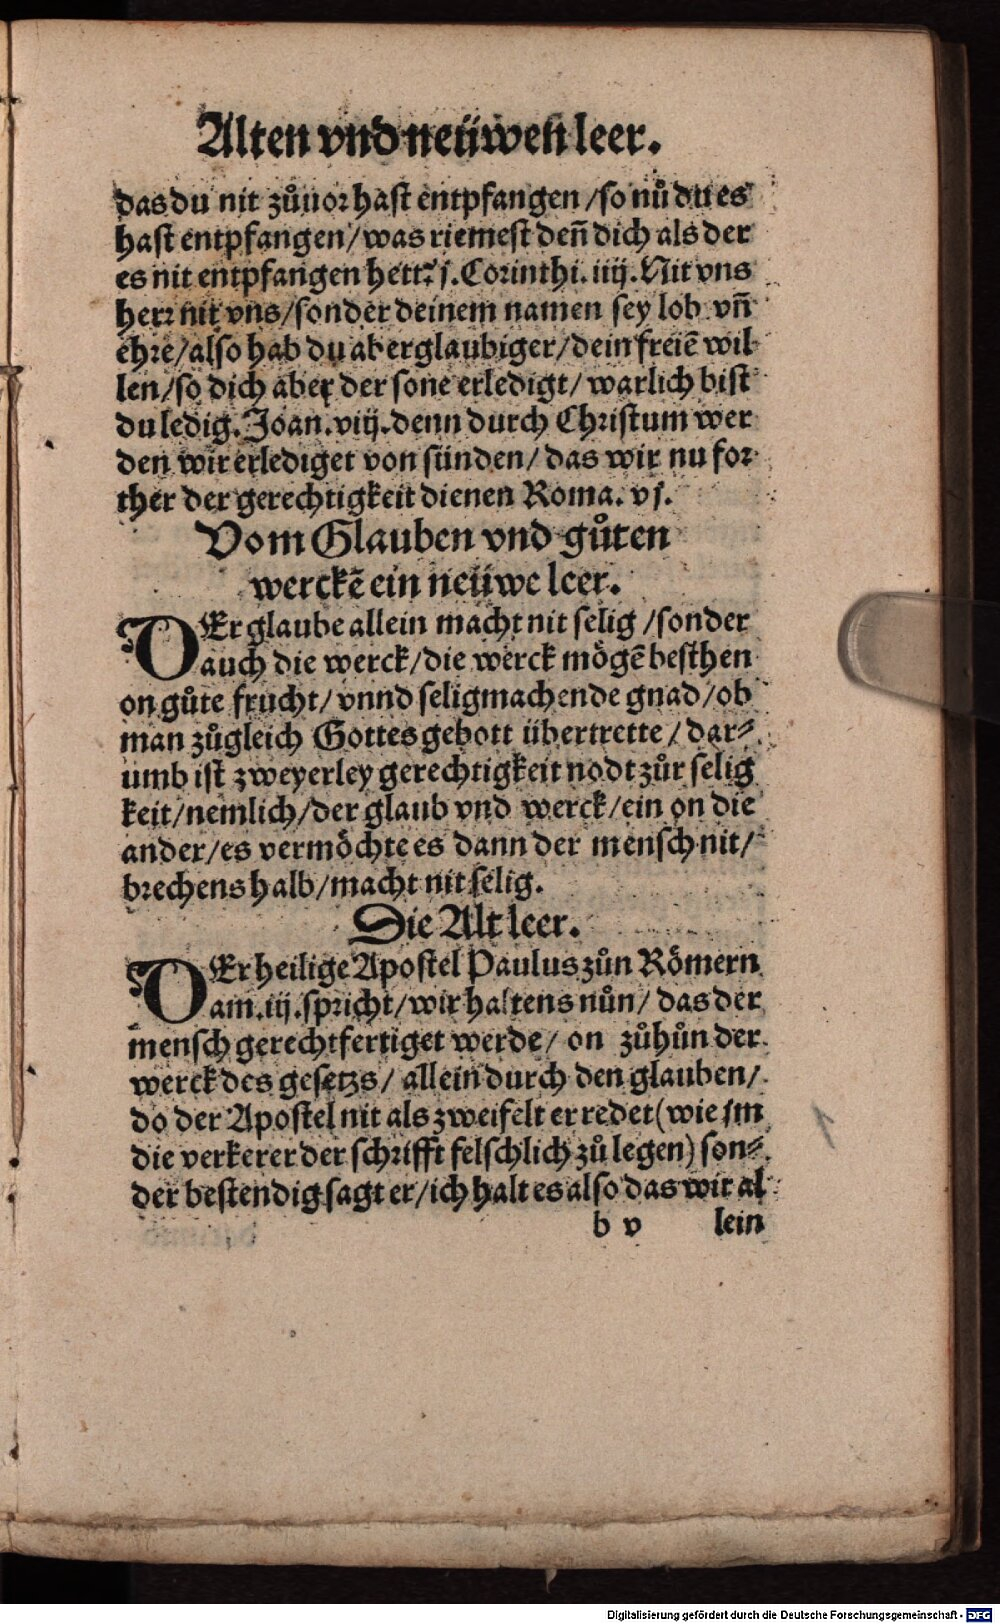 Alten vnd neüwen leer.
das du nit zůuor hast entpfangen / so nů du es
hast entpfangen / was riemest deñ dich als der
es nit entpfangen hett? j. Corinthi. iiij. Nit vns
herr nit vns / sonder deinem namen sey lob vñ
ehre / also hab du aberglaubiger / dein freiē wil
len / so dich aber der sone erledigt / warlich bist
du ledig. Joan. viij. denn durch Christum wer
den wir erlediget von sünden / das wir nu for
ther der gerechtigkeit dienen Roma. vj.
Vom Glauben vnd gůten
werckē ein neüwe leer.
DEr glaube allein macht nit selig / sonder
auch die werck / die werck mögē besthen
on gůte frucht / vnnd seligmachende gnad / ob
man zůgleich Gottes gebott übertrette / dar⸗
umb ist zweyerley gerechtigkeit nodt zůr selig
keit / nemlich / der glaub vnd werck / ein on die
ander / es vermöchte es dann der mensch nit /
brechens halb / macht nit selig.
Die Alt leer.
DEr heilige Apostel Paulus zůn Römern
am. iij. spricht / wir haltens nůn / das der
mensch gerechtfertiget werde / on zůhůn der
werck des gesetzs / allein durch den glauben /
do der Apostel nit als zweifelt er redet (wie jm
die verkerer der schrifft felschlich zů legen) son⸗
der bestendig sagt er / ich halt es also das wir al
b v lein
1
Digitalisierung gefördert durch die Deutsche Forschungsgemeinschaft - DFG